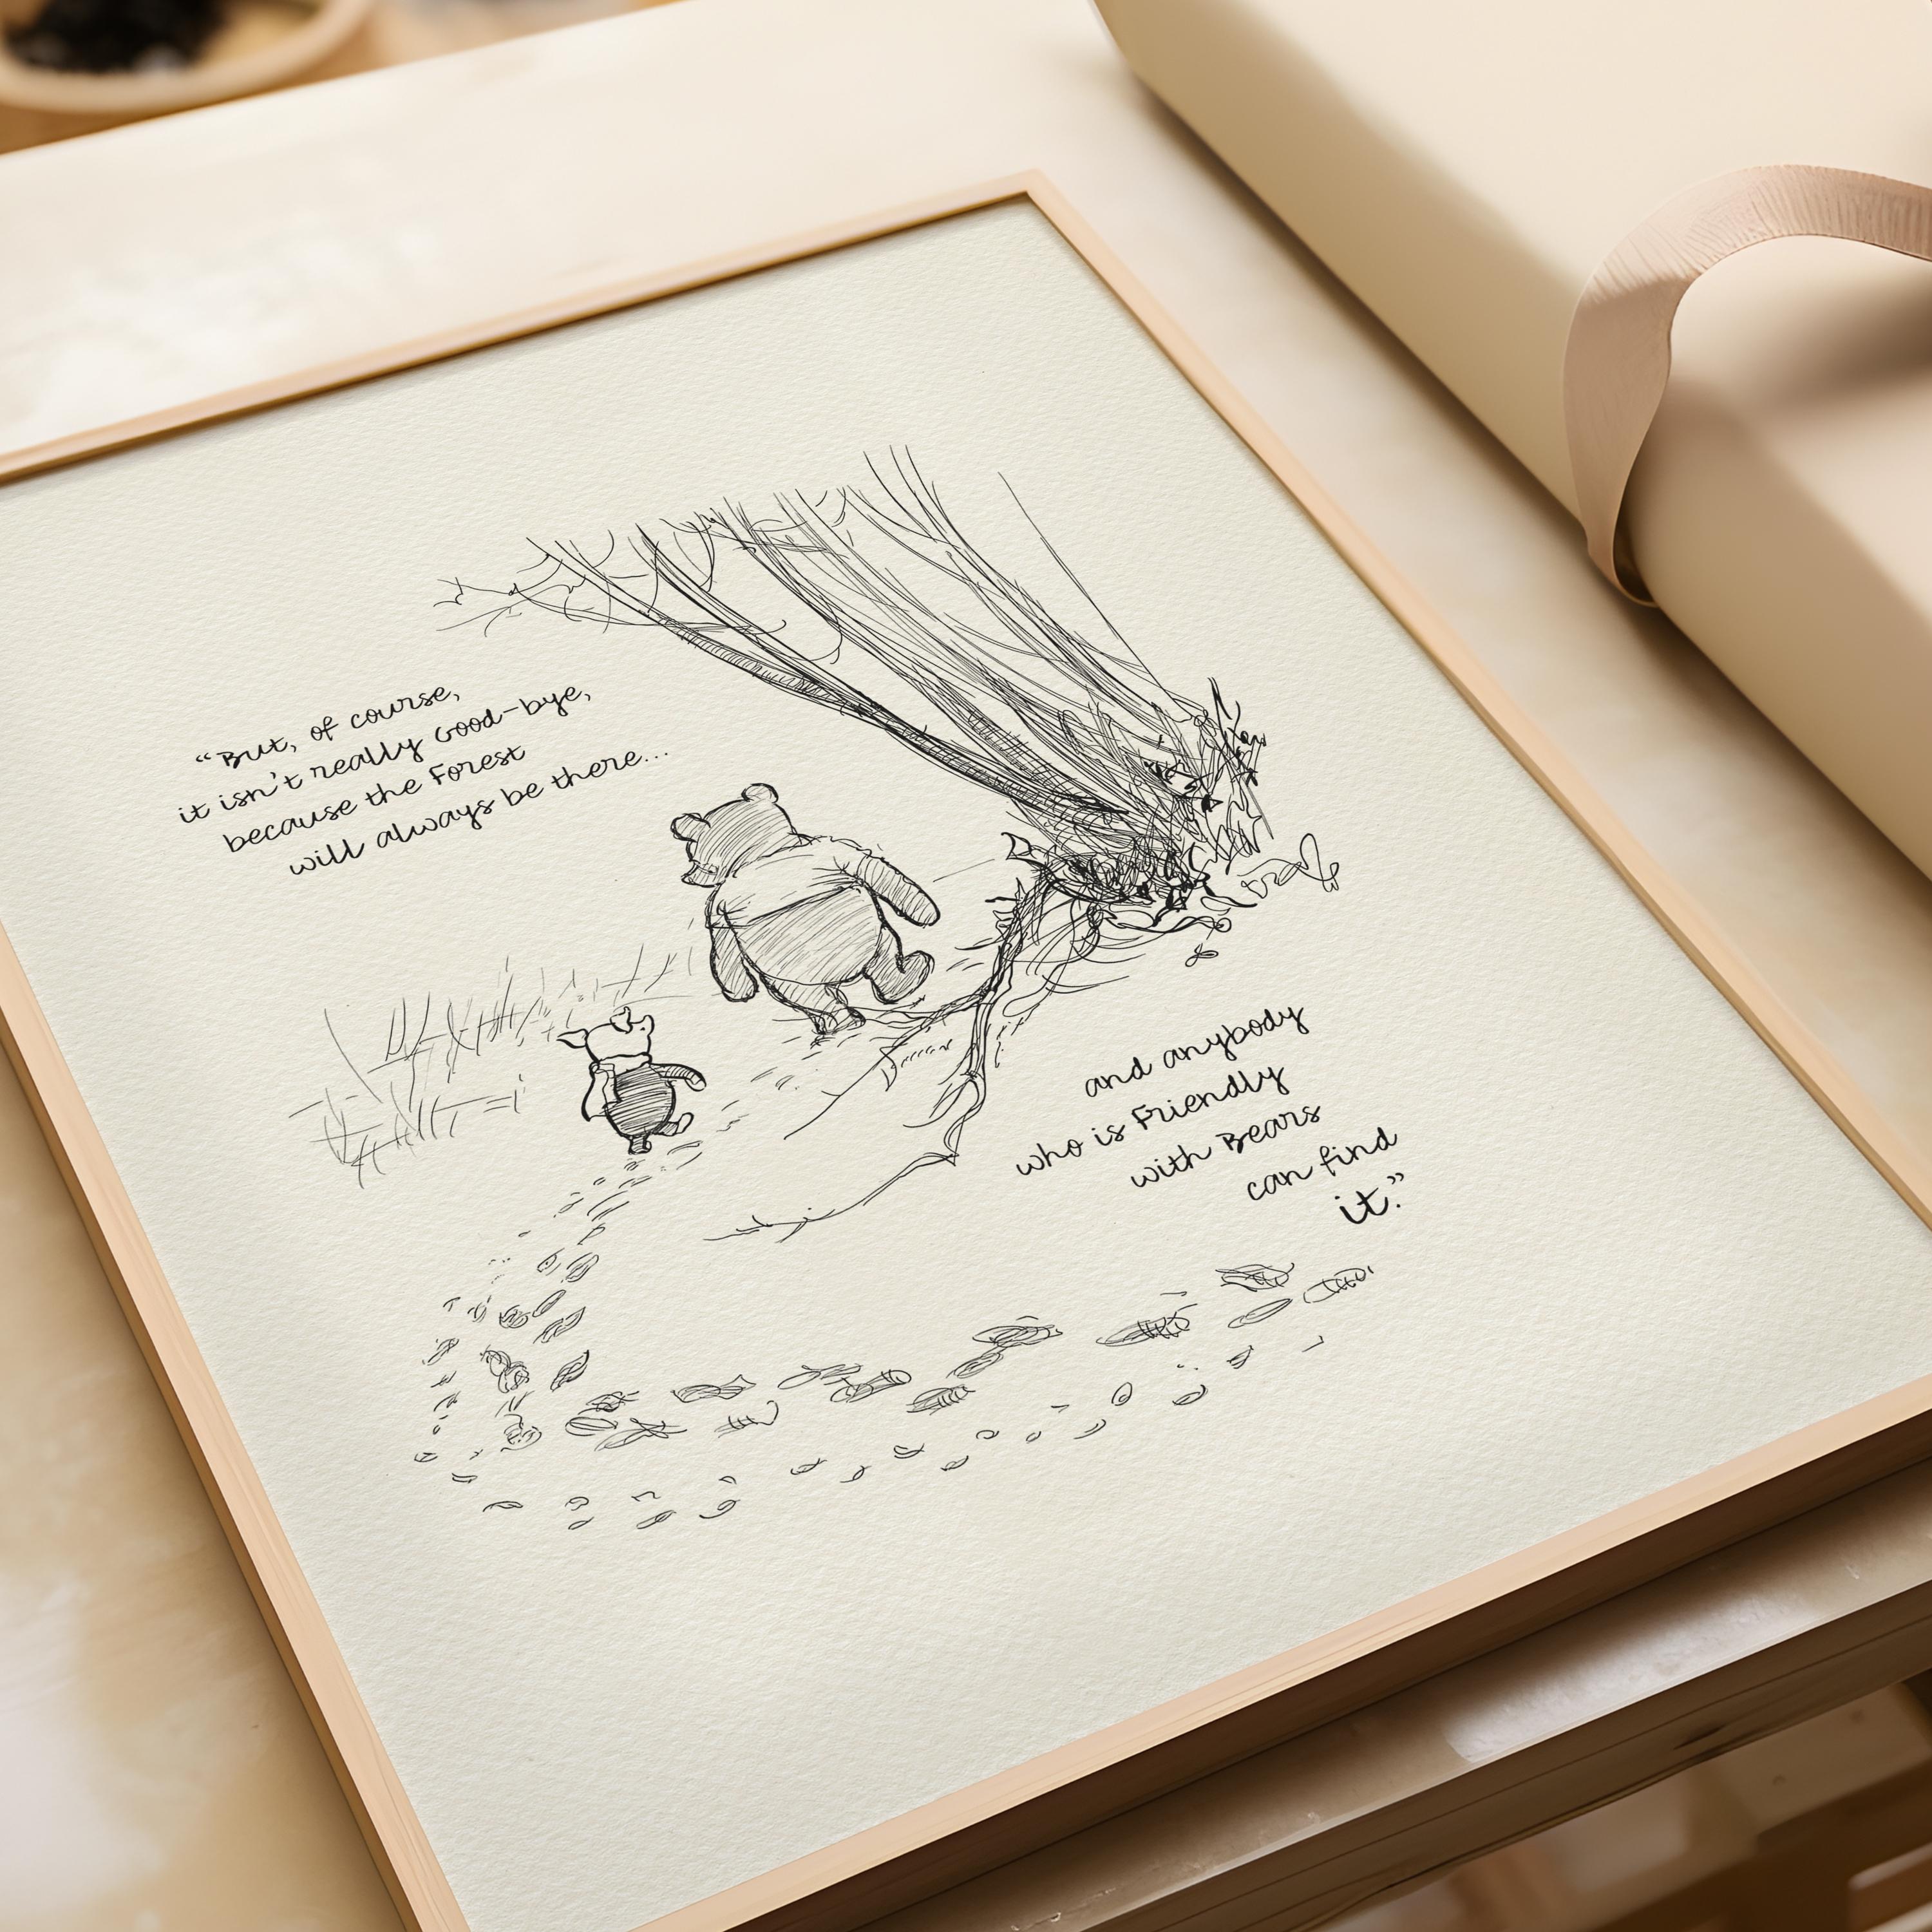 “But, of course,
it isn't really Good-bye,
because the Forest
will always be there...
and anybody
who is Friendly
with Bears
can find
it.”